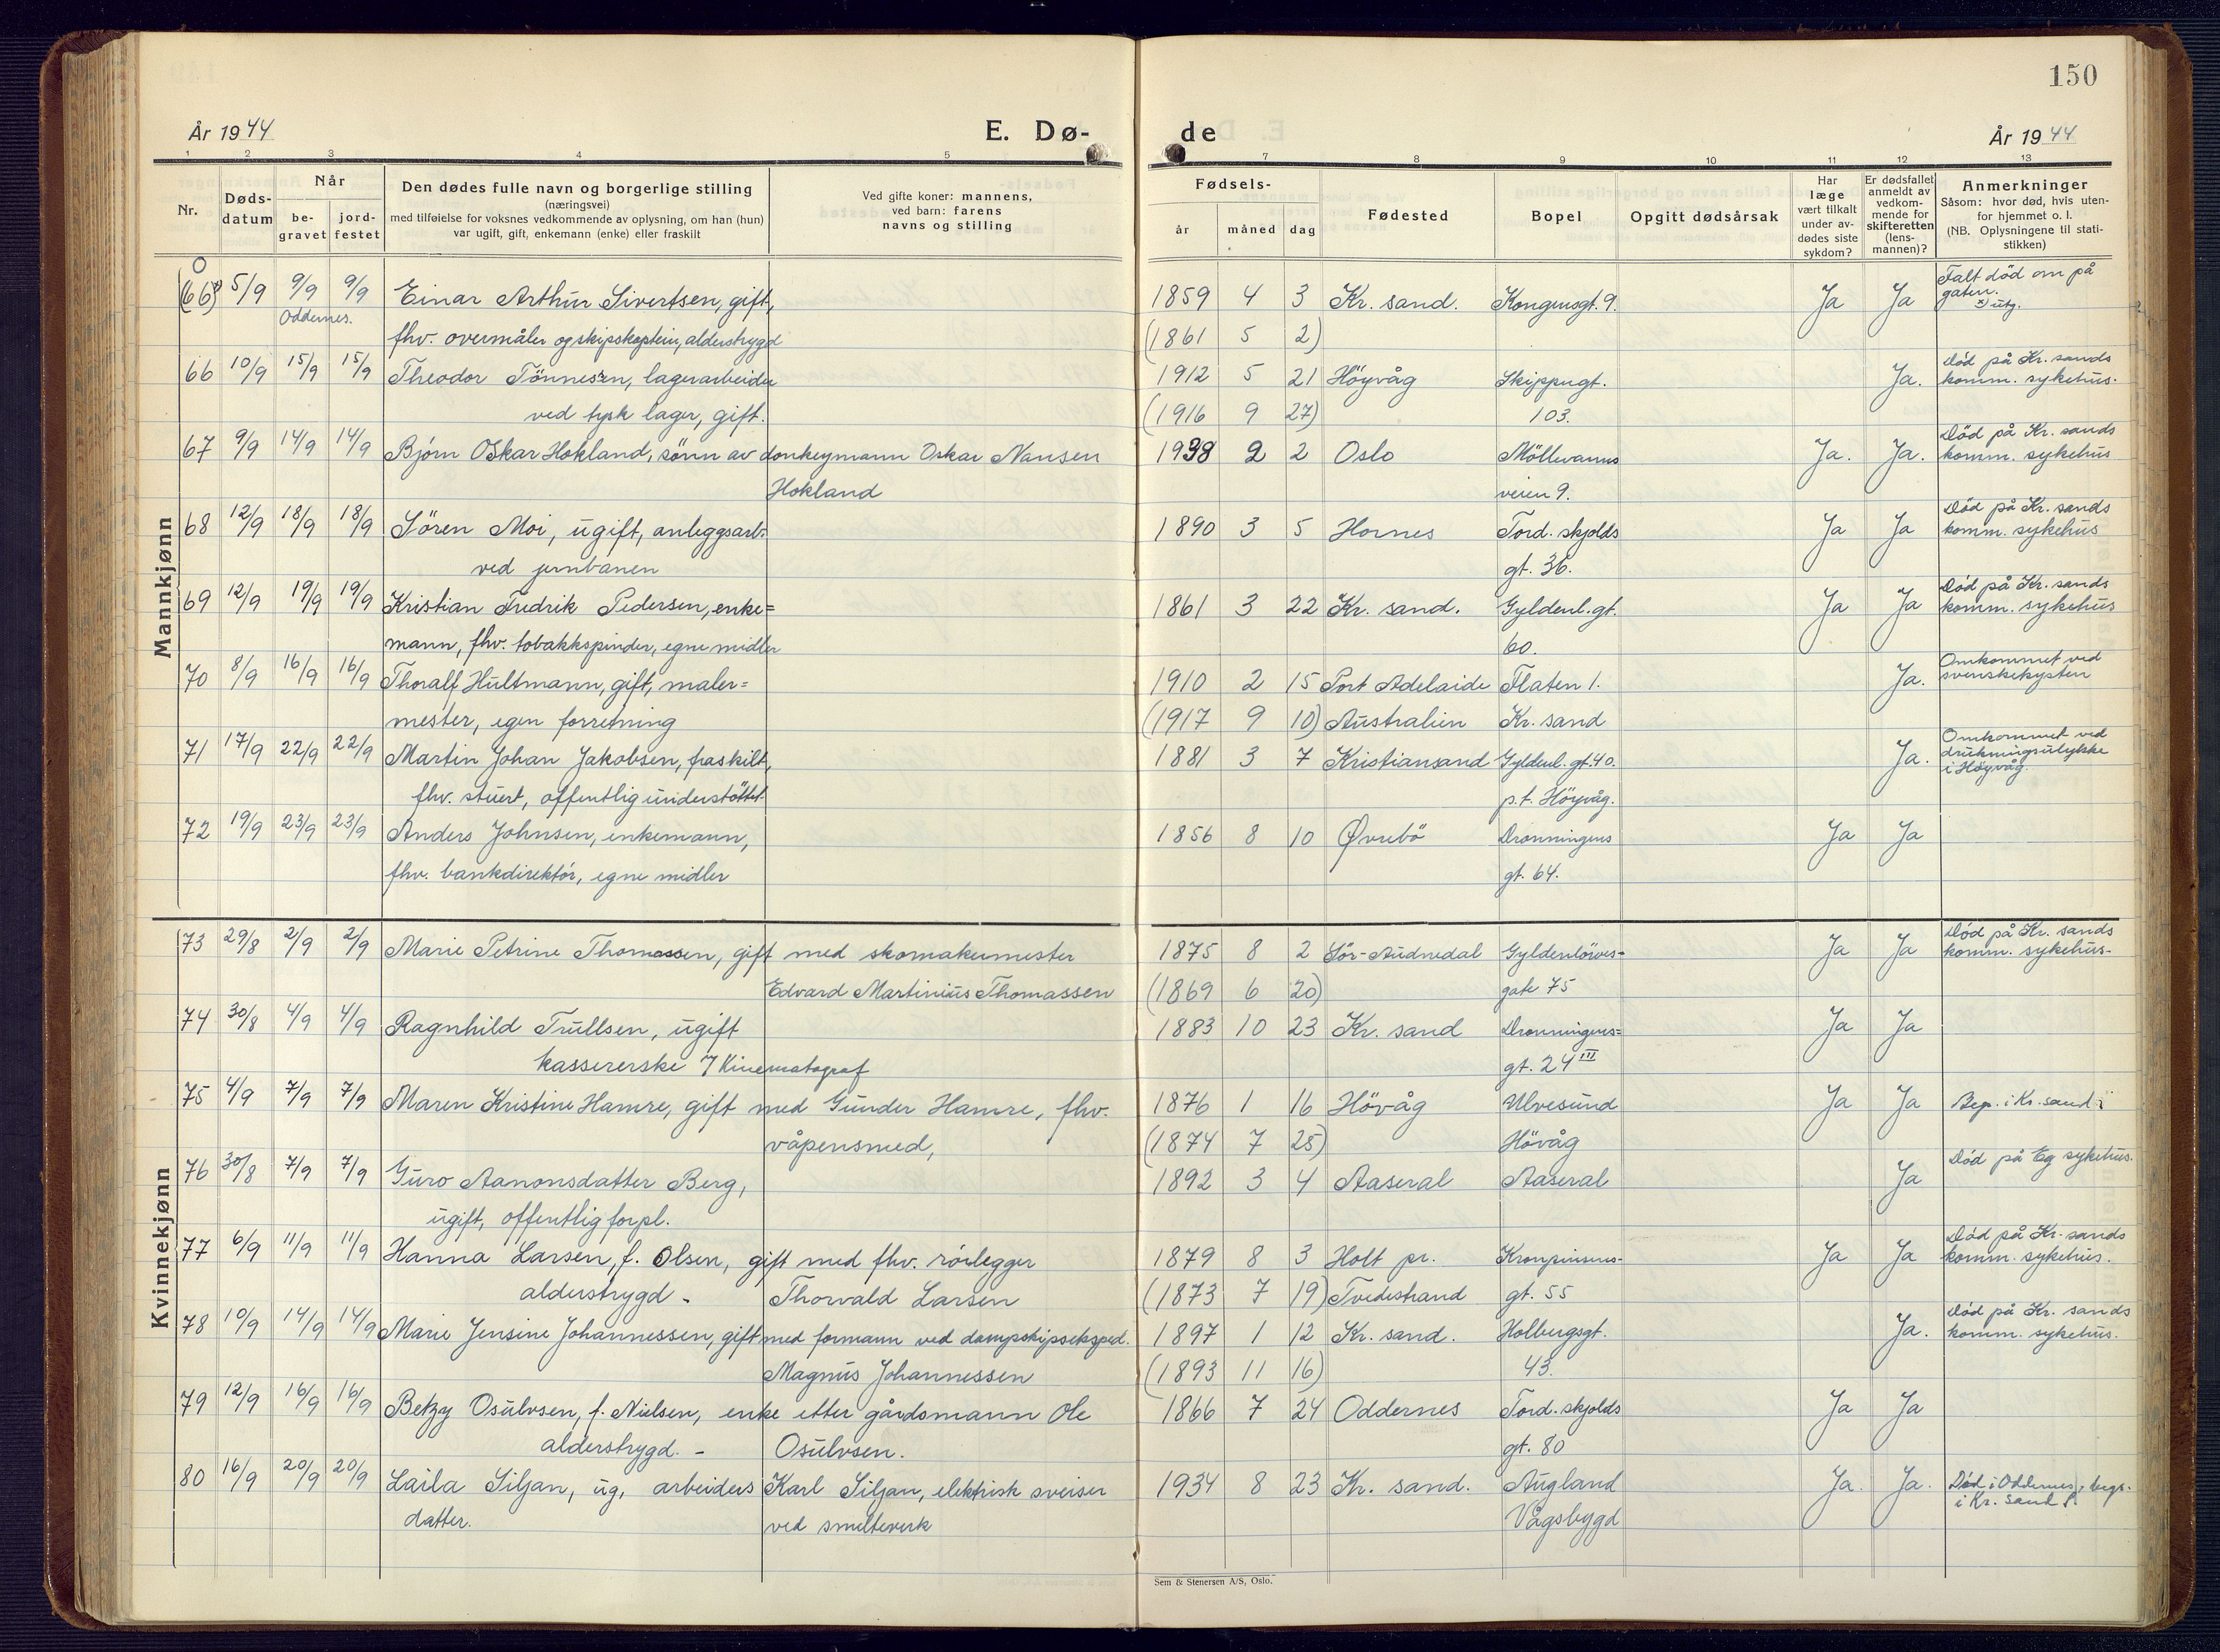 150
År 1944 E. Dø- de År 1944
1 2 3 4 5 7 8 9 10 11 12 13
Nr. Døds-datum Når be-gravet jord-festet
Den dødes fulle navn og borgerlige stilling
(næringsvei)
med tilføielse for voksnes vedkommende av oplysning, om han (hun)
var ugift, gift, enkemann (enke) eller fraskilt
Ved gifte koner: mannens,
ved barn: farens
navns og stilling
Fødsels- år måned dag
Fødested Bopel Opgitt dødsårsak
Har læge vært tilkalt under av-dødes siste sykdom?
Er dødsfallet anmeldt av vedkom-mende for skifteretten (lens-mannen)?
Anmerkninger
Såsom: hvor død, hvis uten-
for hjemmet o. l.
(NB. Oplysningene til stati-
stikken)
Mannkjønn
(66) 5/9 9/9 9/9 Einar Arthur Sivertsen, gift, 1859 4 3 Kr. sand. Kongensgt. 9. Ja Ja Falt död om på gaten. utg.
Oddernes. fhv. overmåler og skipskaptein, alderstrygd (1861 5 2)
66 10/9 15/9 15/9 Theodor Tönnesen, lagerarbeider 1912 5 21 Höyvåg Skippergt. Ja. Död på Kr. sands komm. sykehus.
ved tysk lager, gift. (1916 9 27) 103.
67 9/9 14/9 14/9 Bjørn Oskar Hokland, sönn av donkeymann Oskar Nansen 1938 2 2 Oslo Möllevanns Ja. Ja. Död på Kr. sands komm. sykehus
Hokland veien 9.
68 12/9 18/9 18/9 Sören Moi, ugift, anleggsarb. 1890 3 5 Hornes Tord. skjolds Ja Ja Död på Kr. sands komm. sykehus
ved jernbanen gt. 36.
69 12/9 19/9 19/9 Kristian Fredrik Pedersen, enke= 1861 3 22 Kr. sand. Gyldenl. gt. Ja Ja Död på Kr. sands komm. sykehus
mann, fhv. tobakkspinder, egne midler 60.
70 8/9 16/9 16/9 Thoralf Hultmann, gift, maler= 1910 2 15 Port Adelaide Flaten 1. Ja. Omkommet ved svenskekysten
mester, egen forretning (1917 9 10) Australien Kr. sand
71 17/9 22/9 22/9 Martin Johan Jakobsen, fraskilt, 1881 3 7 Kristiansand Gyldenl. gt. 40. Ja. Omkommet ved drukningsulykke i Höyvåg.
fhv. stuert, offentlig understöttet. p.t. Höyvåg.
72 19/9 23/9 23/9 Anders Johnsen, enkemann, 1856 8 10 Øvrebö Dronningens Ja Ja
fhv. bankdirektör, egne midler gt. 64.
Kvinnekjønn
73 29/8 2/9 2/9 Marie Petrine Thomassen, gift med skomakermester 1875 8 2 Sör-Audnedal Gyldenlöves- Ja Ja Död på Kr. sands komm. sykehus.
Edvard Martinius Thomassen (1869 6 20) gate 75
74 30/8 4/9 4/9 Ragnhild Trullsen, ugift 1883 10 23 Kr. sand Dronningens= Ja Ja
kassererske / Kinematograf gt. 24 III
75 4/9 7/9 7/9 Maren Kristine Hamre, gift med Gunder Hamre, fhv. 1876 1 16 Hövåg Ulvesund Ja Ja Begr. i Kr. sand
våpensmed, (1874 7 25) Hövåg
76 30/8 7/9 7/9 Guro Aanonsdatter Berg, 1892 3 4 Aaseral Aaseral Ja Död på Eg sykehus.
ugift, offentlig forpl.
77 6/9 11/9 11/9 Hanna Larsen, f. Olsen, gift med fhv. rörlegger 1879 8 3 Holt pr. Kronprinsens- Ja Ja Död på Kr. sands komm. sykehus.
alderstrygd - Thorvald Larsen (1873 7 19) Tvedestrand gt. 55
78 10/9 14/9 14/9 Marie Jensine Johannessen, gift med formann ved dampskipseksped. 1897 1 12 Kr. sand. Holbergsgt. Ja. Död på Kr. sands komm. sykehus.
Magnus Johannessen (1893 11 16) 43.
79 12/9 16/9 16/9 Betzy Osulvsen, f. Nielsen, enke etter gårdsmann Ole 1866 7 24 Oddernes Tord. skjolds Ja Ja
alderstrygd. - Osulvsen. gt. 80
80 16/9 20/9 20/9 Laila Siljan, ug, arbeiders Karl Siljan, elektrisk sveiser 1934 8 23 Kr. sand. Augland Ja. Ja. Död i Oddernes, begr. i Kr. sand
datter. ved smelteverk Vågsbygd
Sem & Stenersen A/S, Oslo.